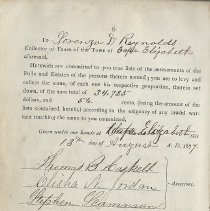 6
To Lorenzo D. Reynolds
Collector of Taxes of the Town of Cape Elizabeth
aforesaid.
Herewith are committed to you true lists of the assessments of the
Polls and Estates of the persons therein named; you are to levy and
collect the same, of each one his respective proportion, therein set
down, of the sum total of 34.725
dollars, and 56 cents, (being the amount of the
lists contained herein) according to the exigency of any awful war-
rant touching the same to you committed.
Given under our hands at Cape Elizabeth this
13th August A. D. 1877.
Thomas B. Haskell
Elisha N. Jordan
Stephen Scamman
Assessors.